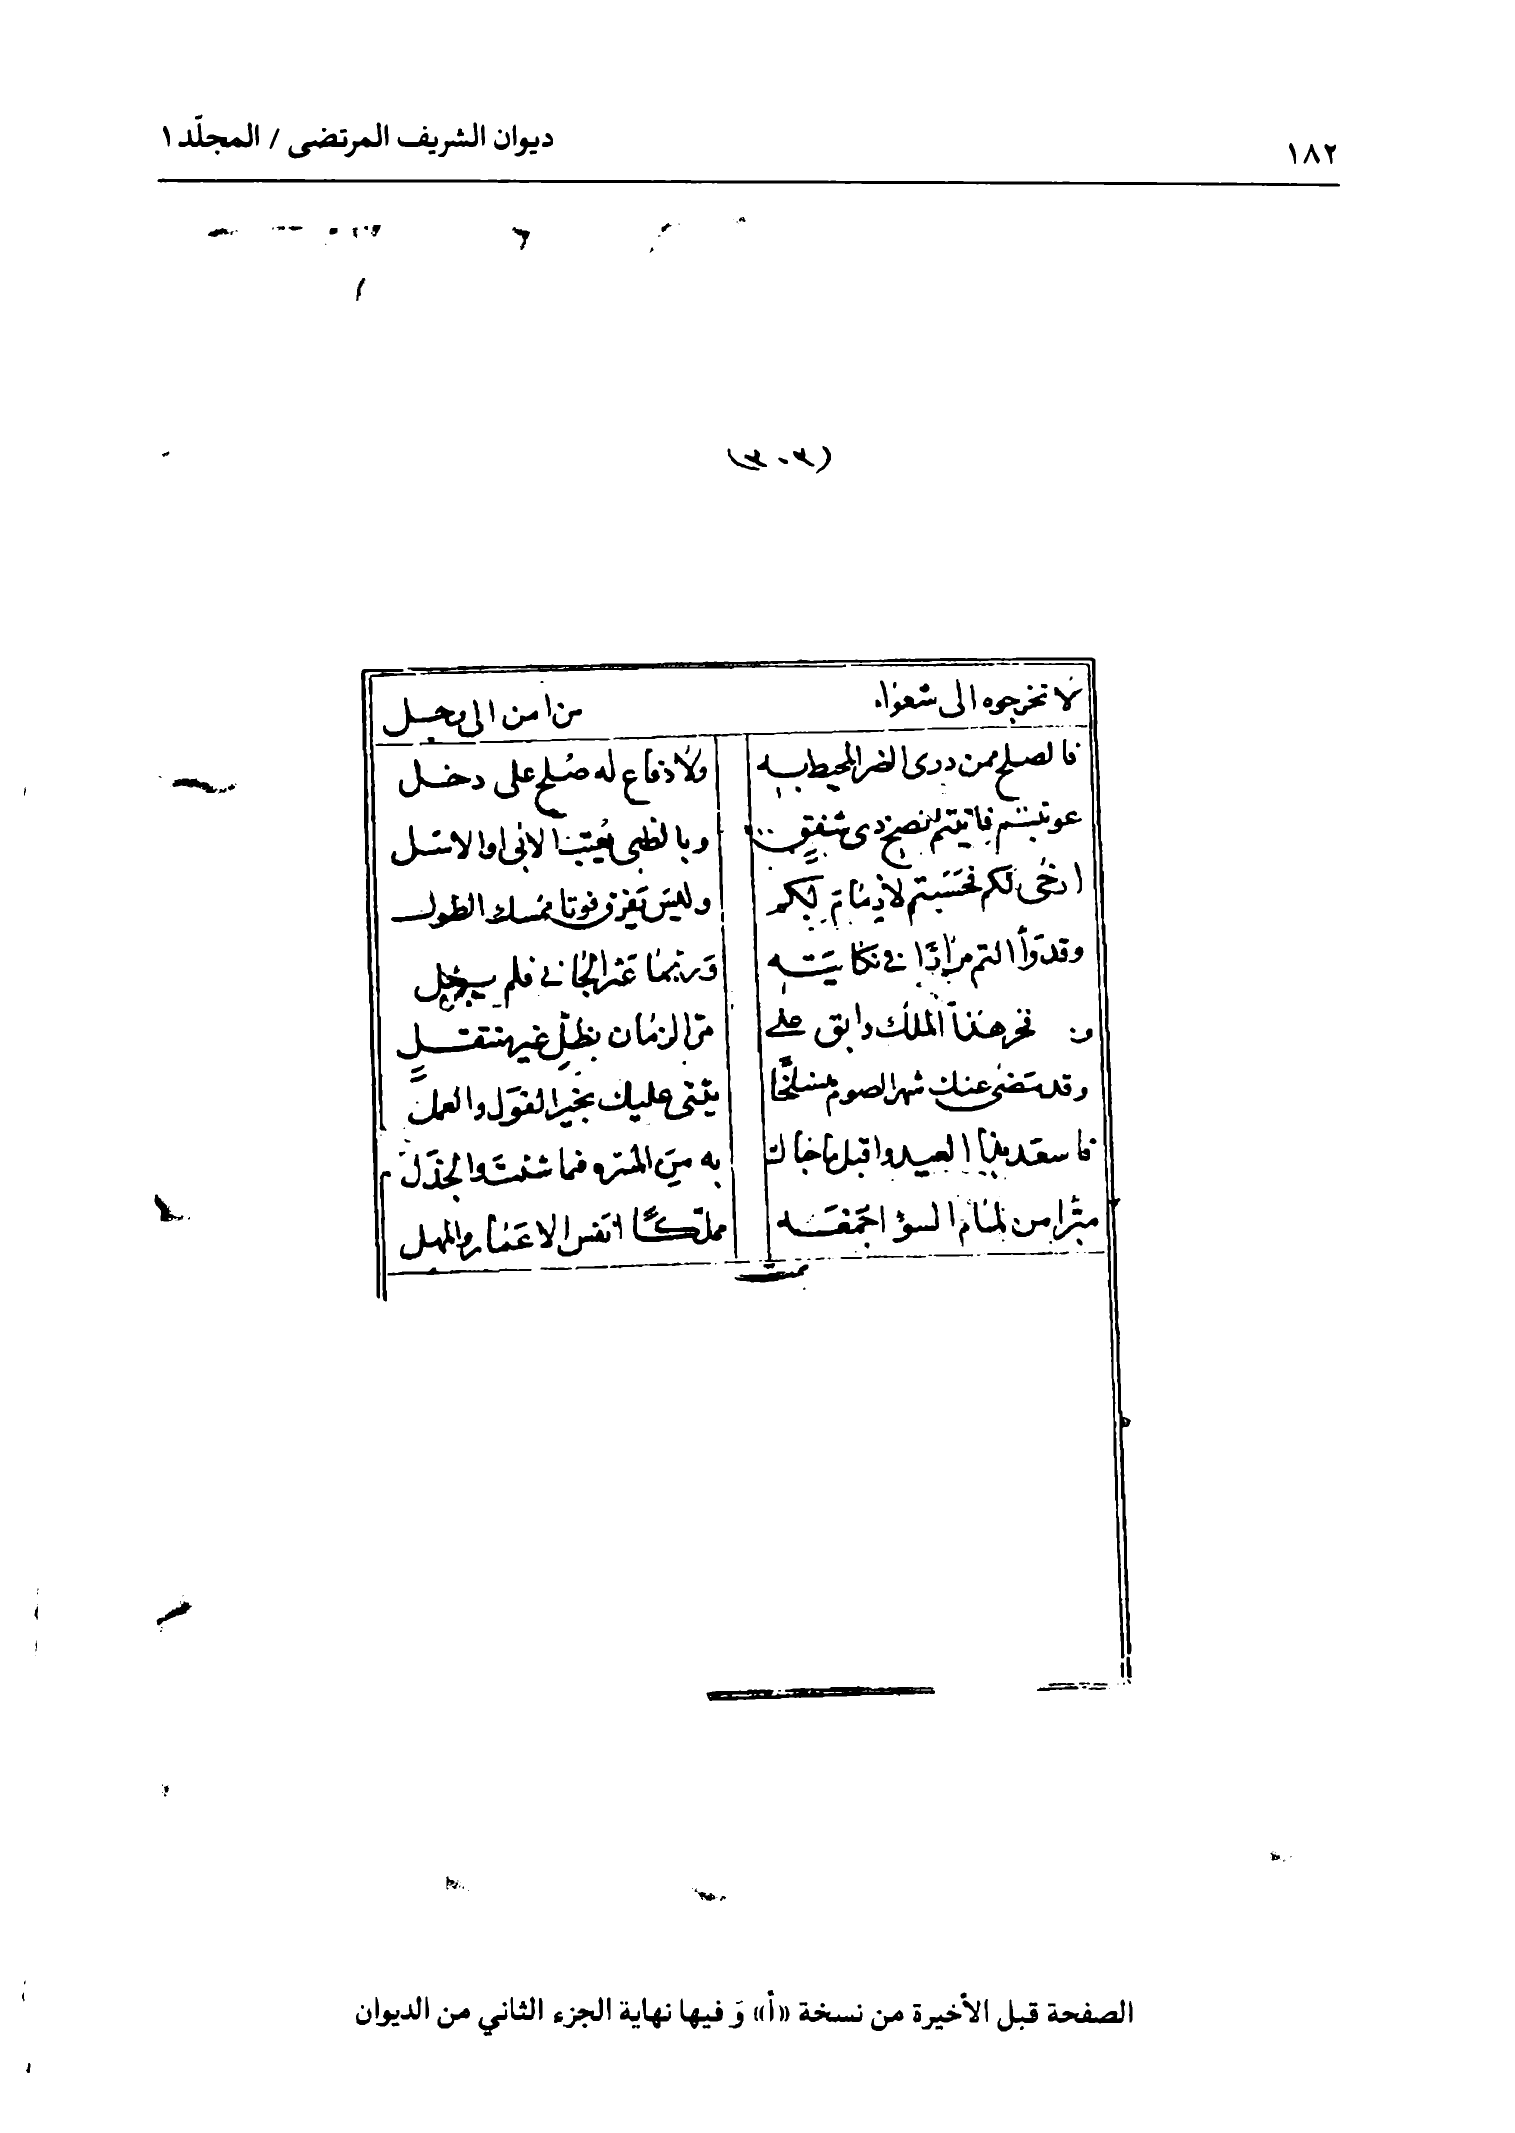 ١٨٢ ديوان الشريف المرتضى / المجلّد ١
(٣٠٣)
لا تخرجوه الى شعواء من امن الى وجل
فالصلح ممن درى الضر المحيط به ولا دفاع له صلح على دخل
عوتبتم فاتيتم نصح ذى شفق وبالظبى يعتب الابى او الاسل
ارخى لكم فحسبتم لا زمام لكم وليس تفرق فوتا ممسك الطول
وقد رأ التم مرادًا فى نكايته وربما عثر الجانى فلم
فخر هذا الملك وابق على مر الزمان بظلٍ غير منتقلٍ
وقد مضى عنك شهر الصوم منسلخًا يثنى عليك بخير القول والعمل
فاسعد بهذا العيد واقبل ما حباك به من المسره فما شئت والجذل
مبّرا من لمام السؤ اجمعه مملّكًا انفس الاعمار والمهل
تمت
الصفحة قبل الأخيرة من نسخة «أ» وَ فيها نهاية الجزء الثاني من الديوان